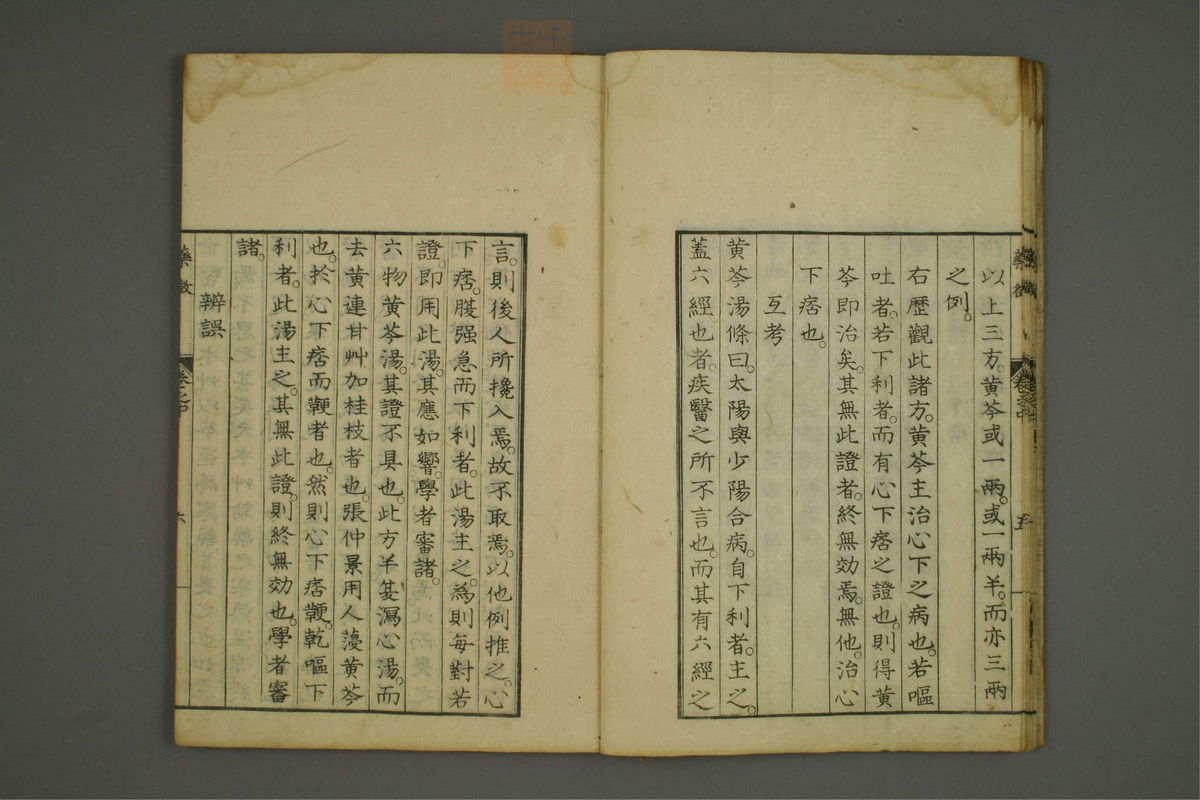 以上三方。黄芩或一兩。或一兩半。而亦三兩
之例。
右歷觀此諸方。黄芩主治心下之病也。若嘔
吐者。若下利者。而有心下痞之證也。則得黄
芩即治矣。其無此證者。終無効焉。無他。治心
下痞也。
互考
黄芩湯條曰。太陽與少陽合病。自下利者。主之。
蓋六經也者。疾醫之所不言也。而其有六經之
言。則後人所攙入焉。故不取焉。以他例推之。心
下痞。腹强急而下利者。此湯主之。為則每對若
證。即用此湯。其應如響。學者審諸。
六物黄芩湯。其證不具也。此方半夏瀉心湯。而
去黄連甘艸加桂枝者也。張仲景用人蓡黄芩
也。於心下痞而鞕者也。然則心下痞鞕。乾嘔下
利者。此湯主之。其無此證。則終無効也。學者審
諸。
辨誤
藥徴
卷之中
六